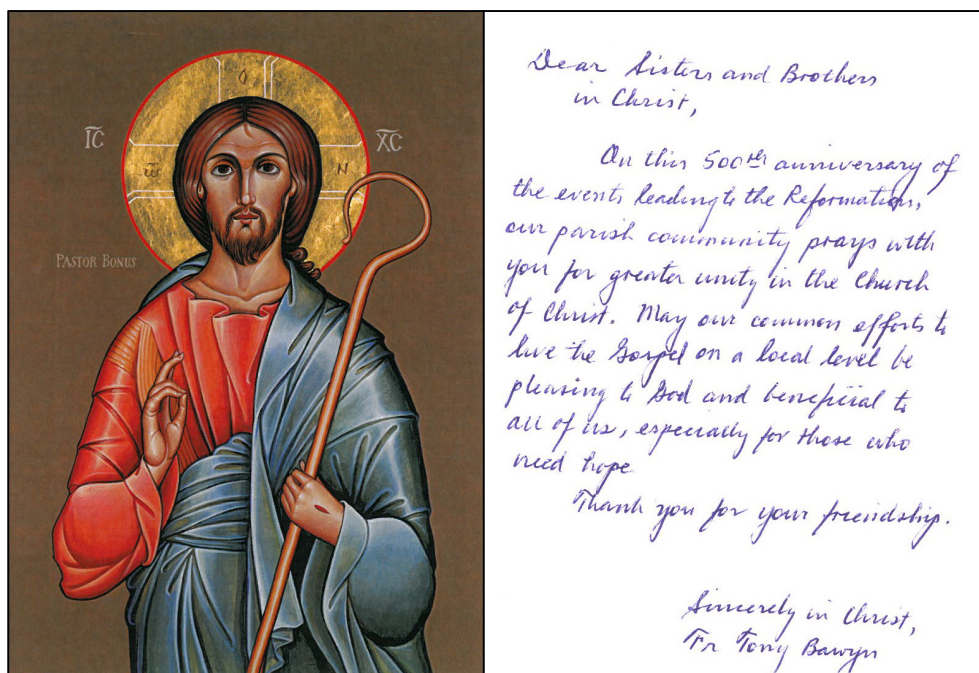 O
IC
XC
ω
N
PASTOR BONUS
Dear Sisters and Brothers
in Christ,
On this 500th anniversary of
the events leading to the Reformation,
our parish community prays with
you for greater unity in the Church
of Christ. May our common efforts to
live the Gospel on a local level be
pleasing to God and beneficial to
all of us, especially for those who
need hope
Thank you for your friendship.
Sincerely in Christ,
Fr Tony Bawyn